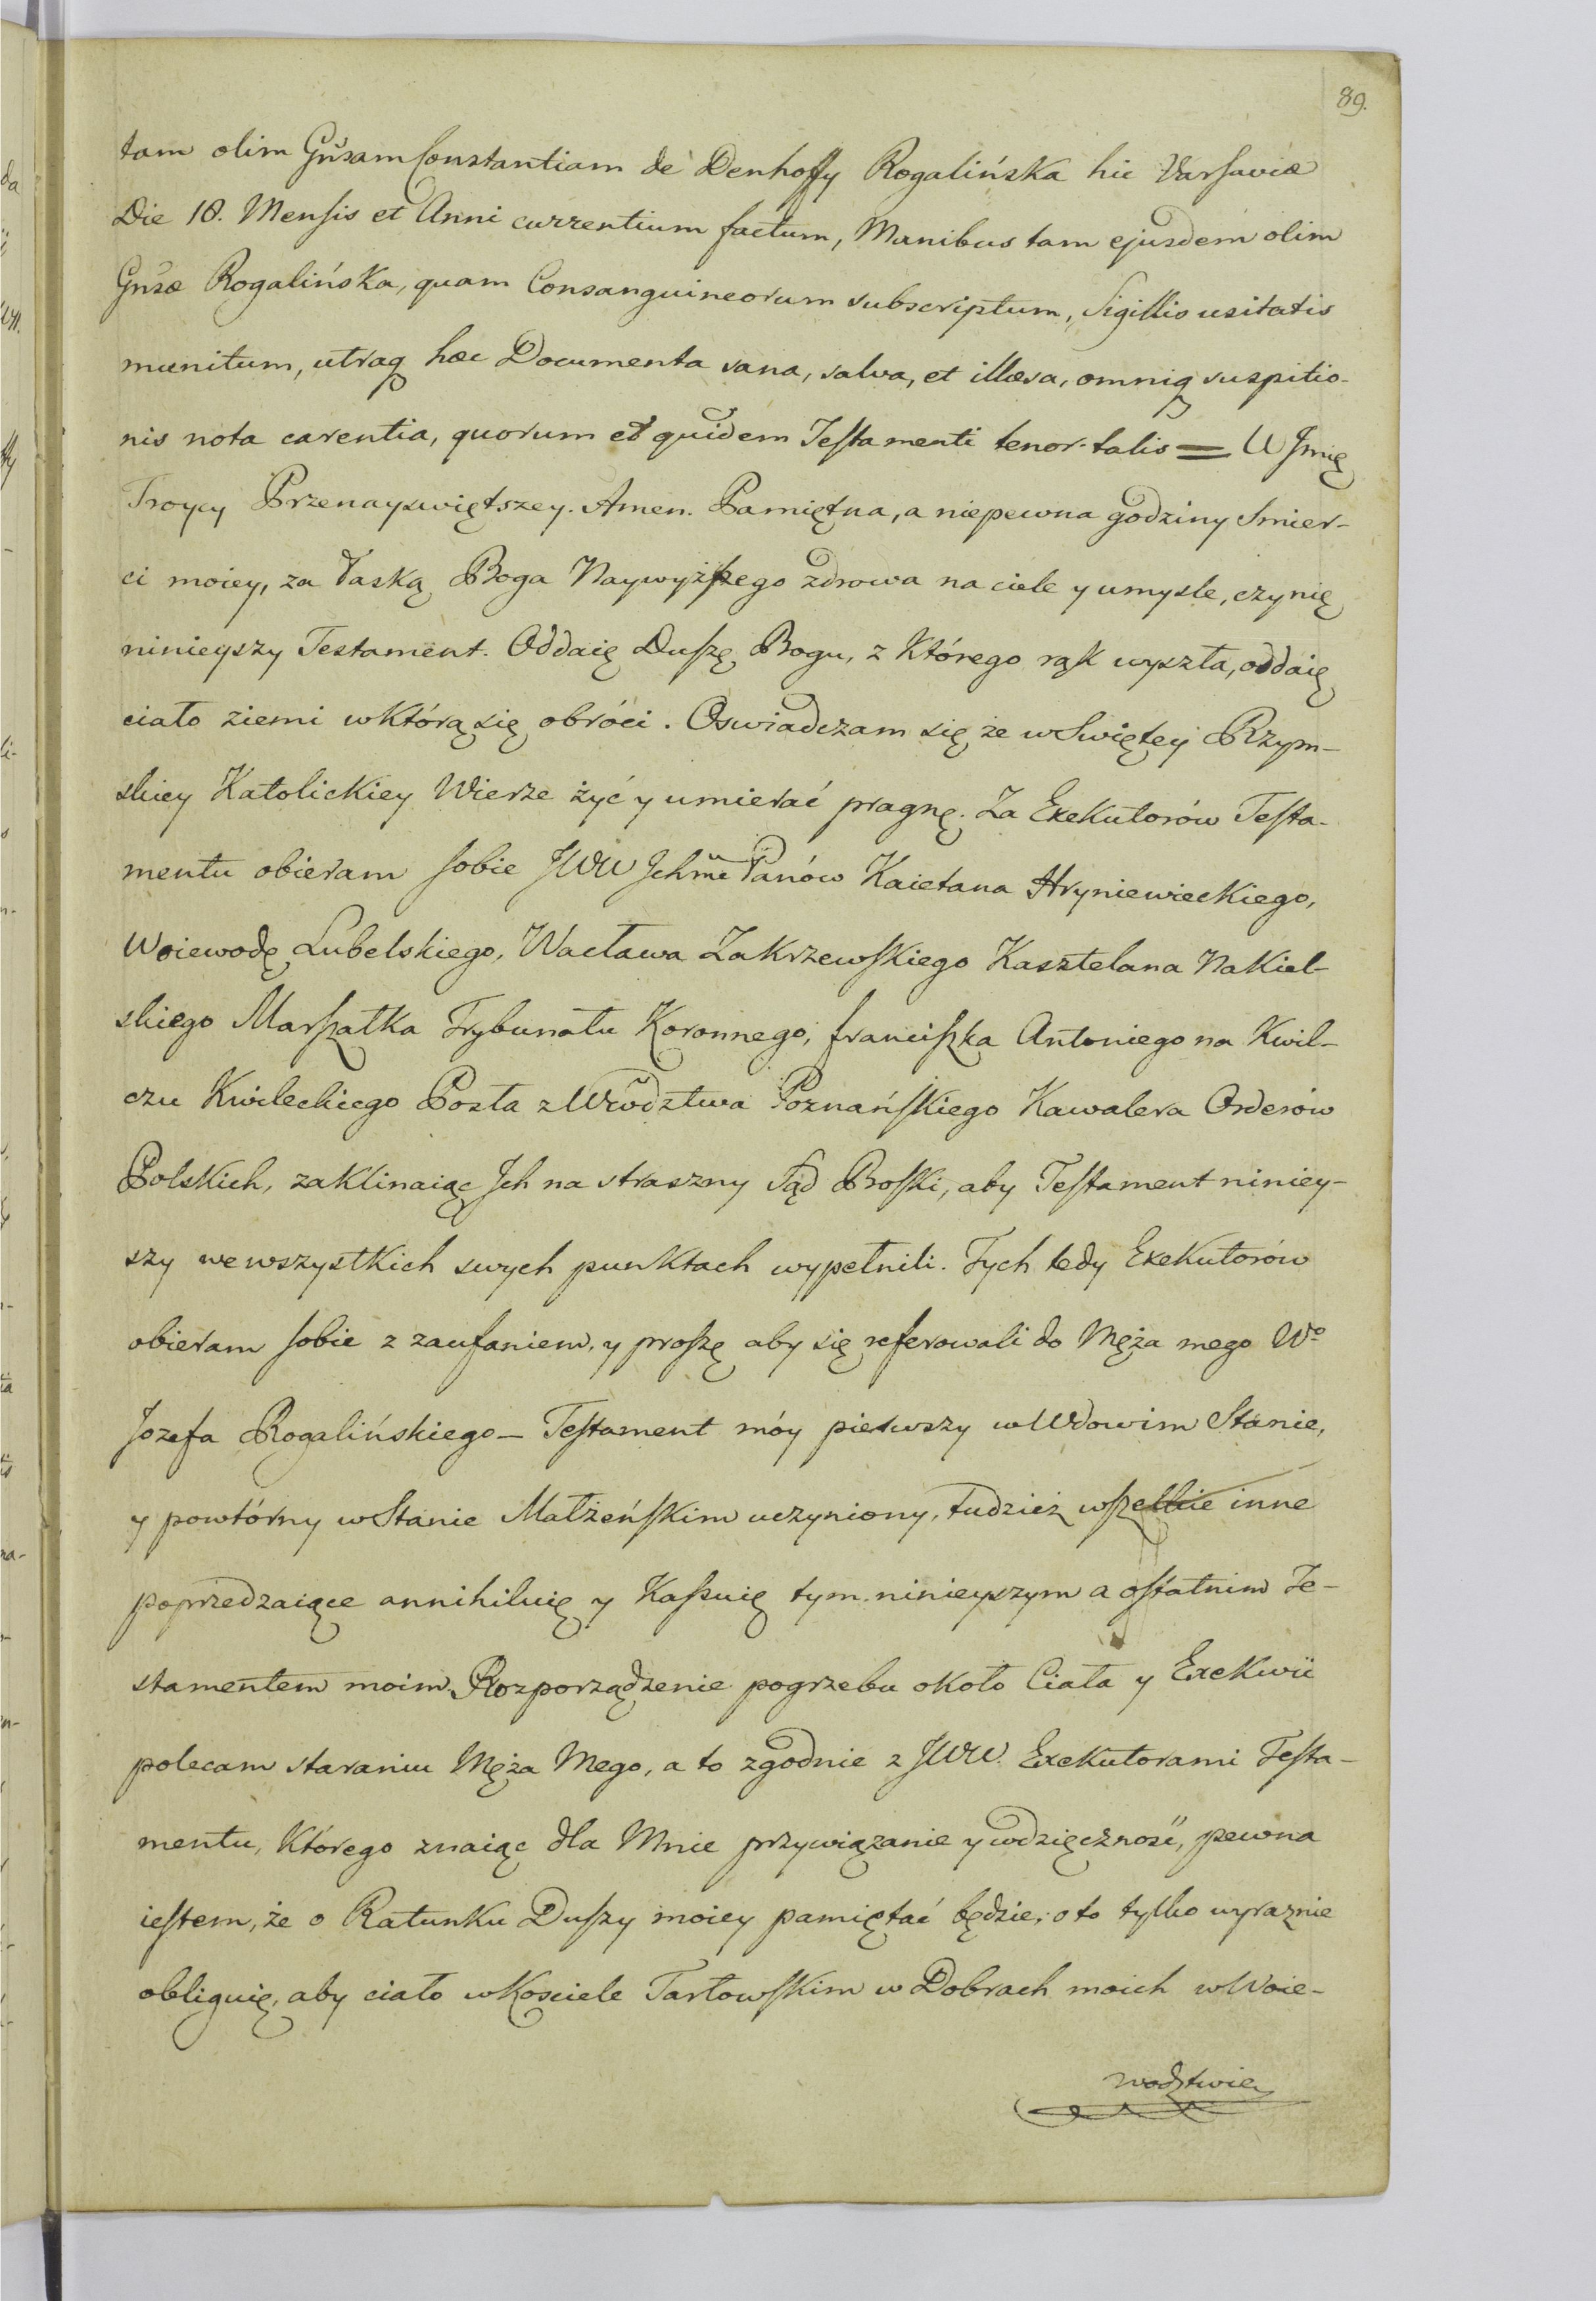 89.
tam olim Gnsam Constantiam de Denhoffy Rogalińska hic Varsaviæ
Die 18. Mensis et Anni currentium factum, Manibus tam ejusdem olim
Gnsæ Rogalińska, quam Consanguineorum subscriptum, Sigillis usitatis
munitum, utraq hæc Documenta sana, salva, et illæsa, omniq suspitio-
nis nota carentia, quorum et quidem Testamenti tenor talis = W Jmię
Troycy Przenayswiętszey. Amen. Pamiętna, a niepewna godziny Smier-
ci moiey, za łaską Boga Naywyższego zdrowa na ciele y umysle, czynię
ninieyszy Testament. Oddaię Duszę Bogu, z Którego rąk wyszła, oddaię
ciało ziemi w którą się obróci. Oswiadczam się że w Swiętey Rzym-
skiey Katolickiey Wierze żyć y umierać pragnę. Za Exekutorów Testa-
mentu obieram sobie JWW Jchmć Panów Kaietana Hryniewieckiego,
Woiewodę Lubelskiego, Wacława Zakrzewskiego Kasztelana Nakiel-
skiego Marszałka Trybunału Koronnego, franciszka Antoniego na Kwil-
czu Kwileckiego Posła z Wwodztwa Poznańskiego Kawalera Orderów
Polskich, zaklinaiąc Jch na straszny sąd Boski, aby Testament niniey-
szy we wszystkich swych punktach wypełnili. Tych tedy Exekutorów
obieram sobie z zaufaniem, y proszę aby się referowali do Męża mego Wo
Jozefa Rogalińskiego – Testament móy pierwszy w Wdowim Stanie,
y powtórny w Stanie Małżeńskim uczyniony, tudzież wszelkie inne
poprzedzaiące annihiluię y Kassuię tym ninieyszym a ostatnim Te-
stamentem moim. Rozporządzenie pogrzebu około Ciała y Exekwii
polecam staraniu Męża Mego, a to zgodnie z JWW. Exekutorami Testa-
mentu, Którego znaiąc dla Mnie przywiązanie y wdzięczność, pewna
iestem, że o Ratunku Duszy moiey pamiętać będzie; o to tylko wyraznie
obliguię, aby ciało w Kosciele Tarłowskim w Dobrach moich w Woie-
wodztwie